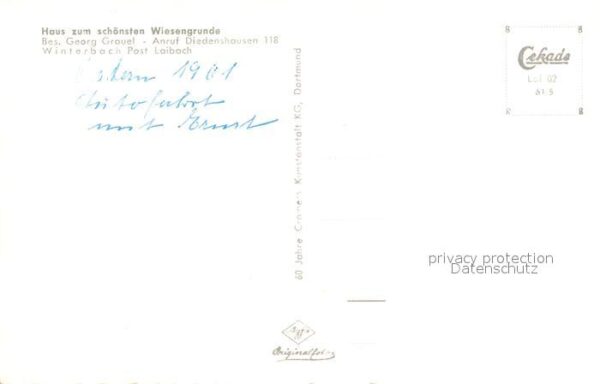 Haus zum schönsten Wiesengrunde
Bes. Georg Grauel - Anruf Diedenshausen 118
Winterbach Post Laibach
Ostern 1961
Autofahrt
mit Ernst
60 Jahre Cramers Kunstanstalt KG, Dortmund
Cekade
Lai 02
61 5
privacy protection
Datenschutz
Originalfoto